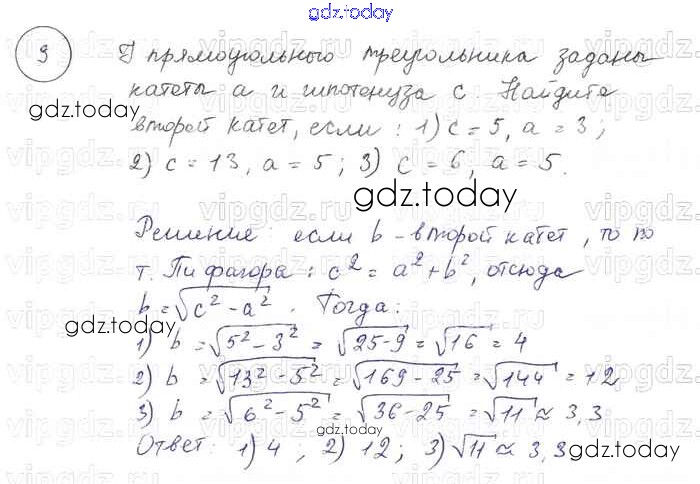 gdz.today
9 У прямоугольного треугольника заданы
катеты a и гипотенуза c. Найдите
gdz.today
второй катет, если: 1) c = 5, a = 3;
2) c = 13, a = 5; 3) c = 6, a = 5.
gdz.today
Решение: если b - второй катет, то по
т. Пифагора: c² = a² + b², отсюда
b = √(c² - a²). Тогда:
gdz.today
1) b = √(5² - 3²) = √(25-9) = √16 = 4
2) b = √(13² - 5²) = √(169 - 25) = √144 = 12
3) b = √(6² - 5²) = √(36 - 25) = √11 ≈ 3,3
gdz.today
Ответ: 1) 4, 2) 12; 3) √11 ≈ 3,3
gdz.today